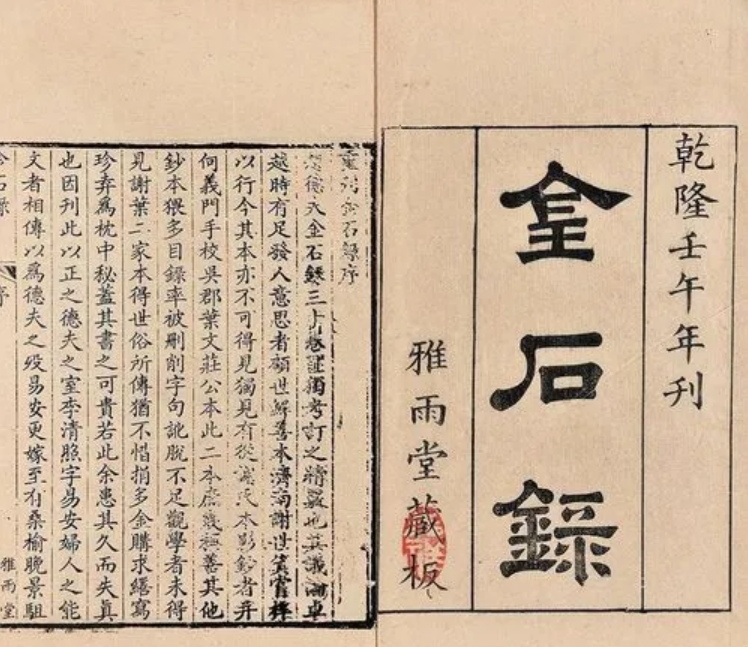 乾隆壬午年刊
金石錄
雅雨堂藏板
重刊金石錄序
趙德夫金石錄三十卷匪獨考訂之精覈也其議論卓
越時有足發人意思者顧世鮮善本濟南謝世箕嘗梓
以行今其本亦不可得見獨見有從謝氏本影鈔者并
何義門手校吳郡葉文莊公本此二本庶幾稱善其他
鈔本猥多目錄率被刪削字句訛脫不足觀學者未得
見謝葉二家本得世俗所傳猶不惜捐多金購求繕寫
珍弆爲枕中秘蓋其書之可貴若此余患其久而失眞
也因刊此以正之德夫之室李清照字易安婦人之能
文者相傳以爲德夫之歿易安更嫁至有桑榆晚景駔
金石錄 序 雅雨堂